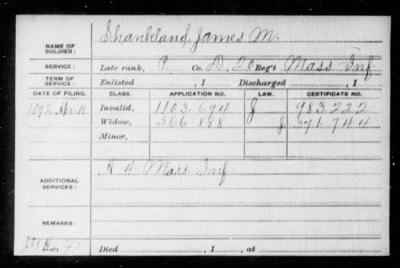 Shankland, James M.
NAME OF SOLDIER:
SERVICE: Late rank, P Co. D, 20 Reg't Mass Inf.
TERM OF SERVICE: Enlisted , 1 Discharged , 1
DATE OF FILING. CLASS. APPLICATION NO. LAW. CERTIFICATE NO.
1892 Apr. Invalid, 1103.694 983.222
Widow, 566.868 376.744
Minor,
ADDITIONAL SERVICES: A 4 Mass Inf.
REMARKS:
Died , 1 , at